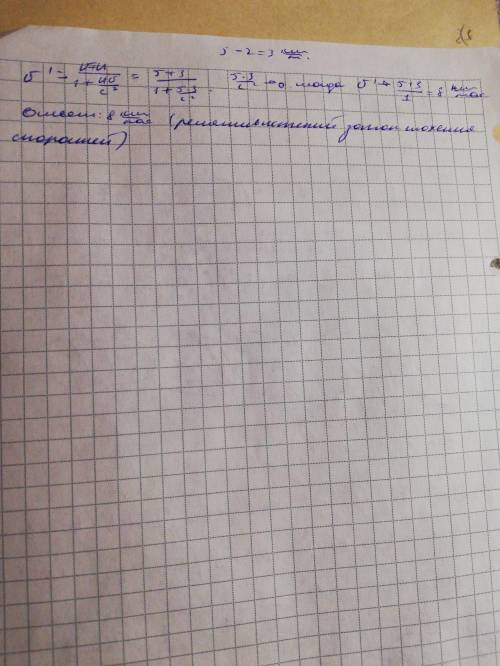 5 - 2 = 3 км/ч.
υ' = (υ+u)/(1 + uυ/c²) = (5+3)/(1 + 5·3/c²). 5·3/c² → 0 тогда υ' = (5+3)/1 = 8 км/час
Ответ: 8 км/час (релятивистский закон сложения
скоростей)